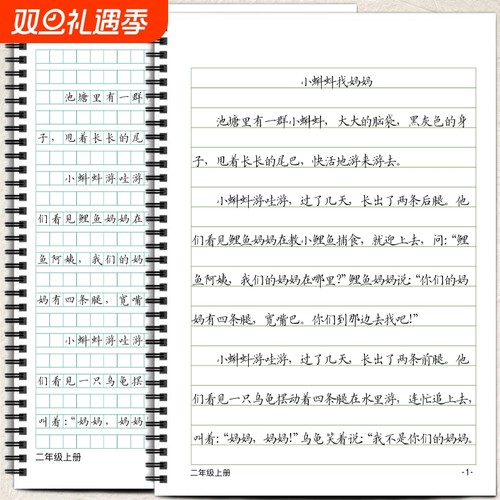 双旦礼遇季
池塘里有一群
子，甩着长长的尾
小蝌蚪游哇游
们看见鲤鱼妈妈在
鱼阿姨，我们的妈
妈有四条腿，宽嘴
小蝌蚪游哇游
们看见一只乌龟摆
叫着：“妈妈，妈妈
二年级上册
小蝌蚪找妈妈
池塘里有一群小蝌蚪，大大的脑袋，黑灰色的身
子，甩着长长的尾巴，快活地游来游去。
小蝌蚪游哇游，过了几天，长出了两条后腿。他
们看见鲤鱼妈妈在教小鲤鱼捕食，就迎上去，问：“鲤
鱼阿姨，我们的妈妈在哪里？”鲤鱼妈妈说：“你们的妈
妈有四条腿，宽嘴巴。你们到那边去找吧！”
小蝌蚪游哇游，过了几天，长出了两条前腿。他
们看见一只乌龟摆动着四条腿在水里游，连忙追上去，
叫着：“妈妈，妈妈！”乌龟笑着说：“我不是你们的妈妈。
二年级上册
-1-